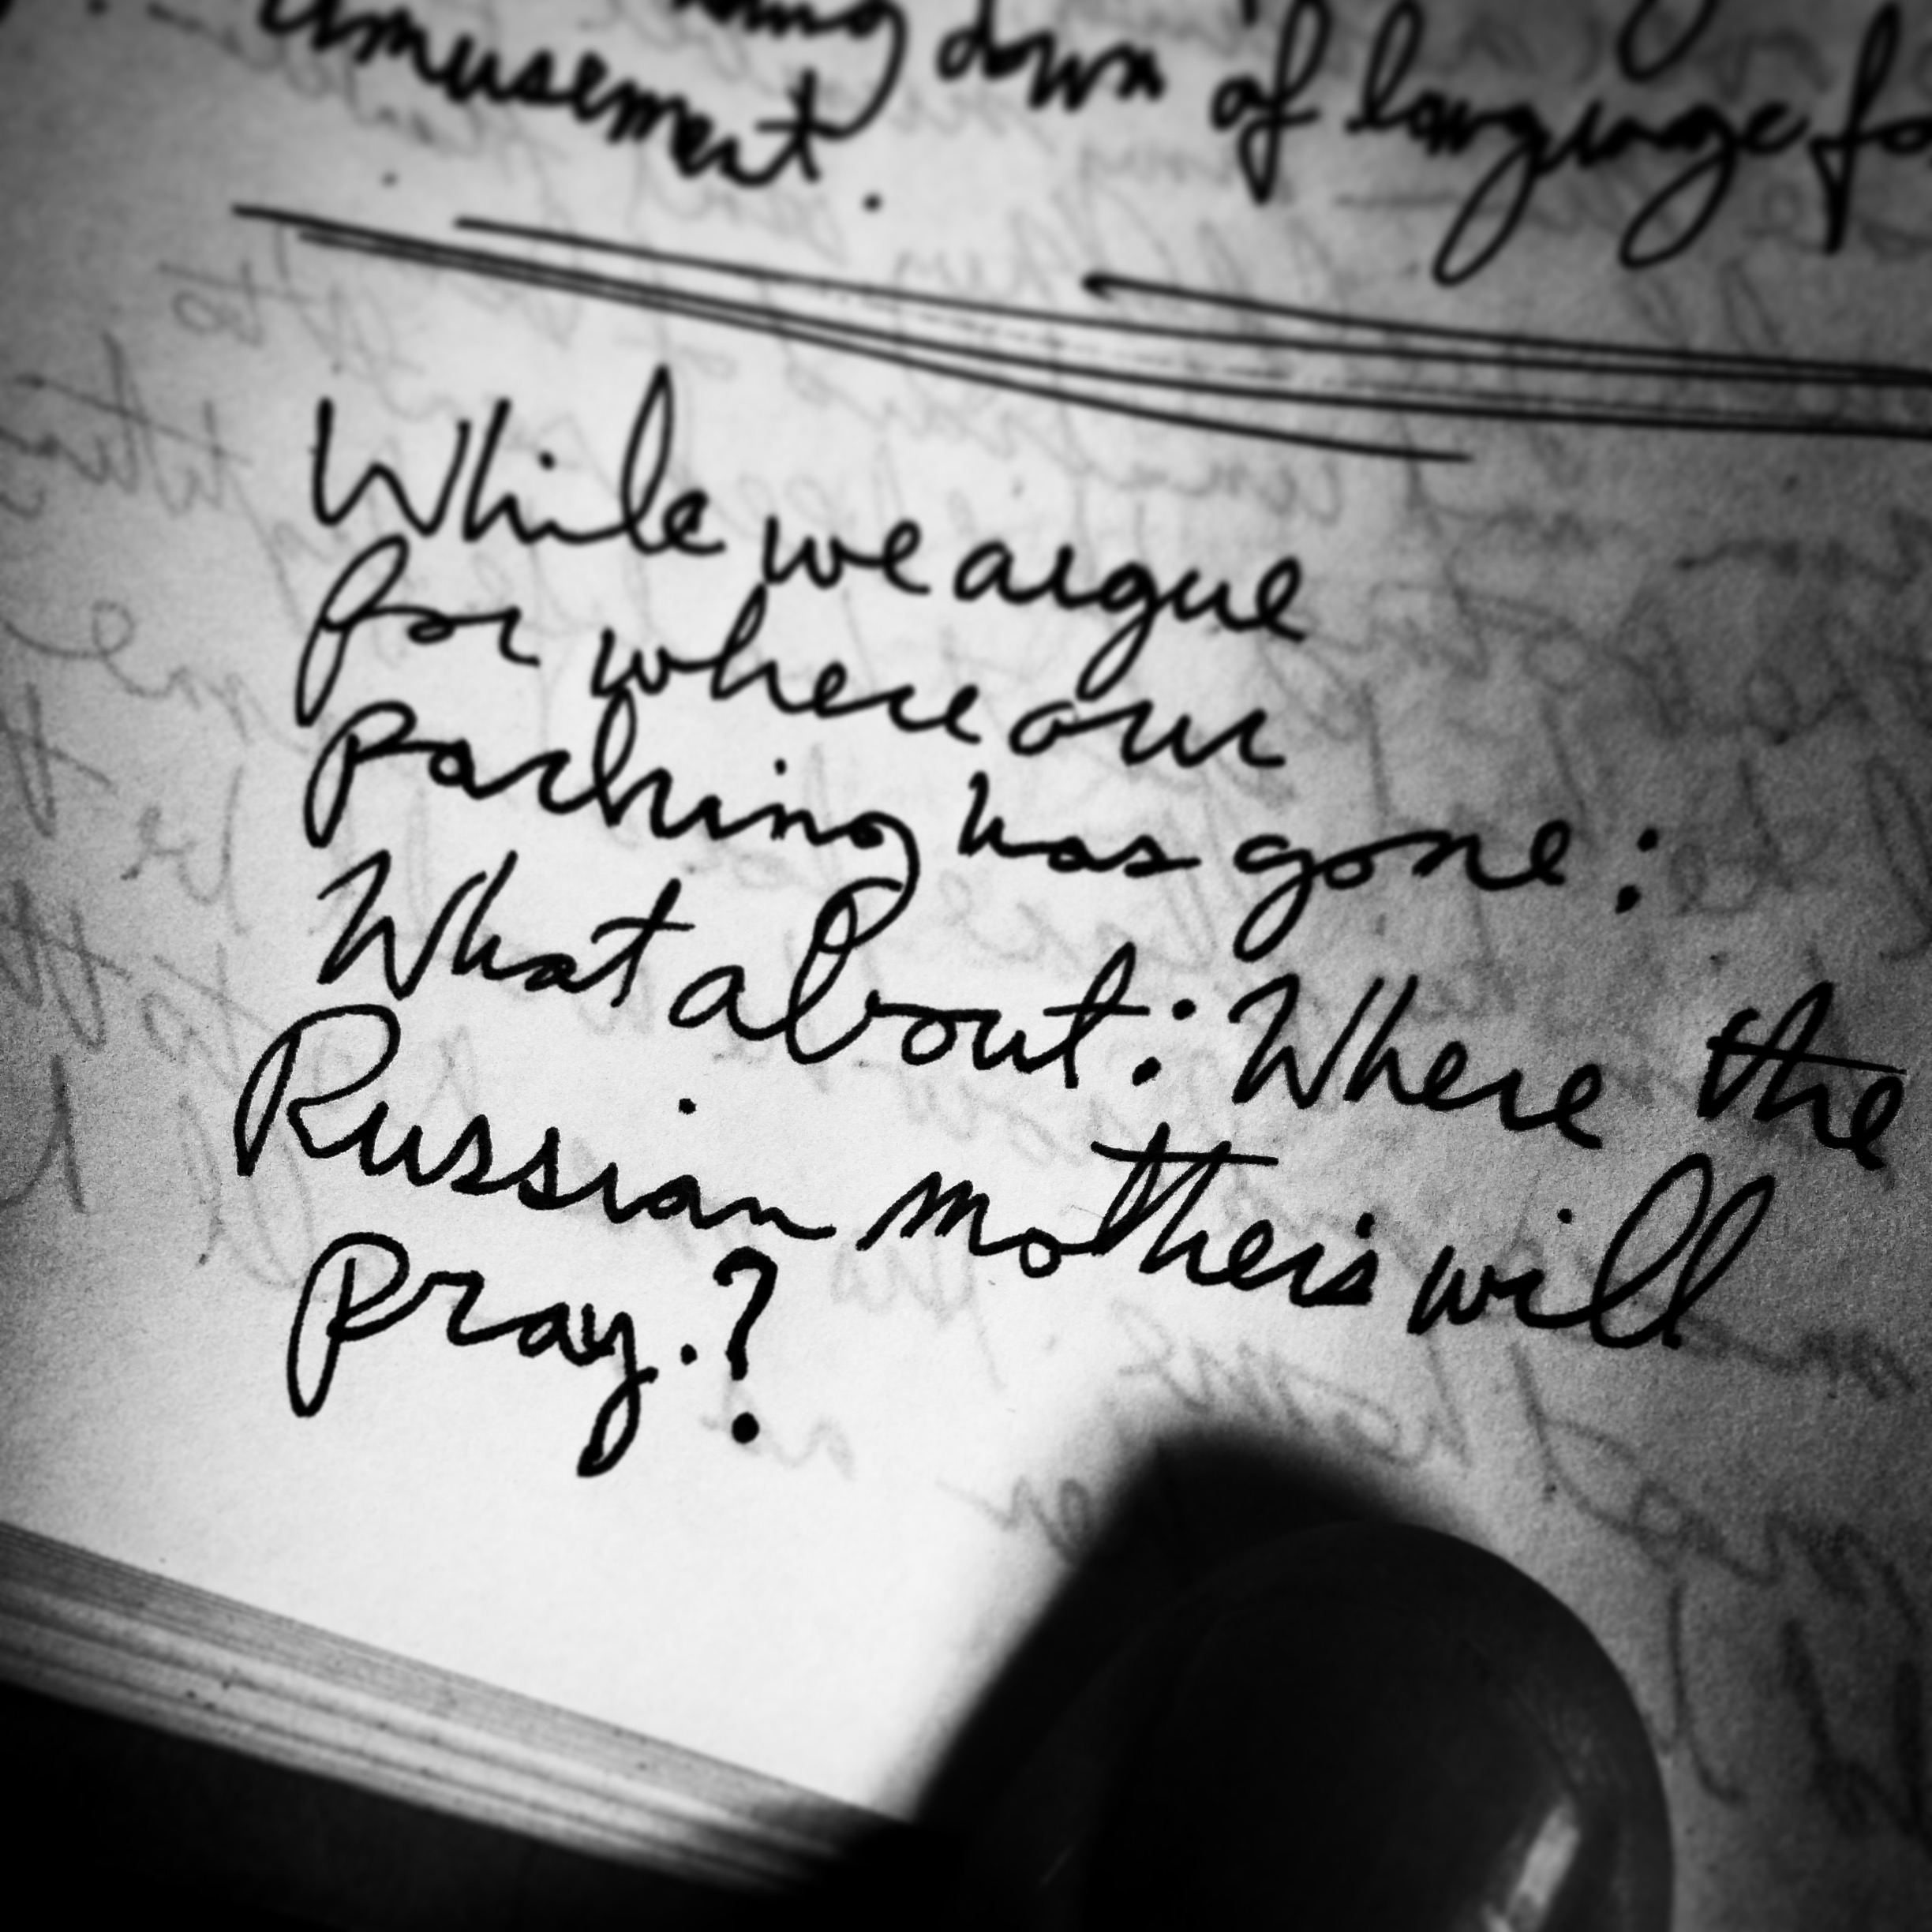 down of language fo
amusement.
While we argue
for where our
parking has gone:
What about: Where the
Russian mothers will
pray.?